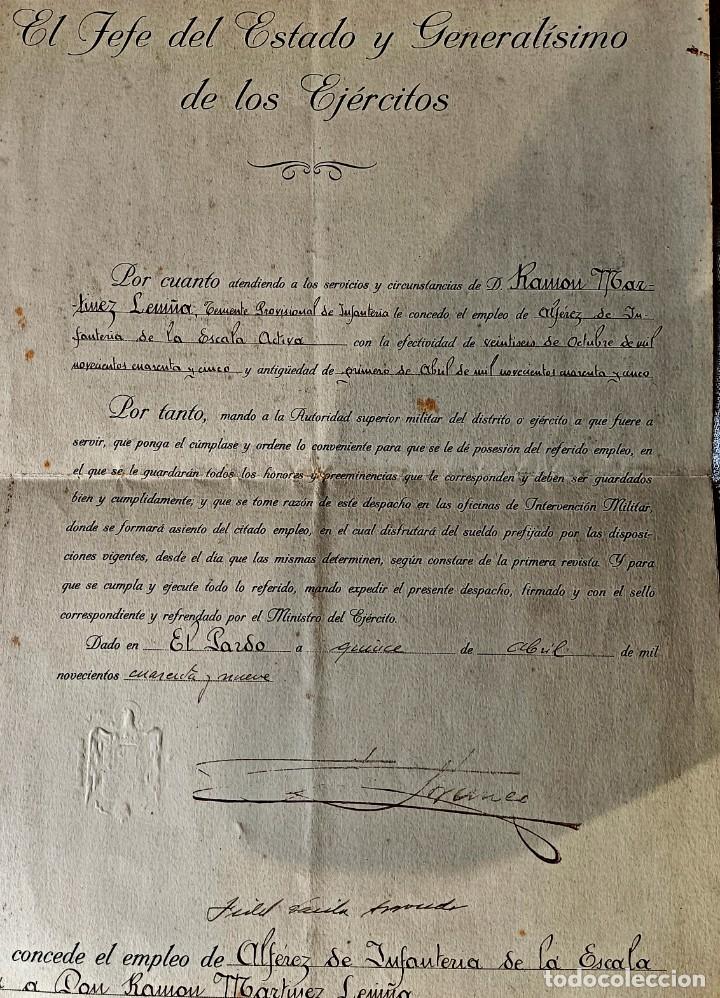 El Jefe del Estado y Generalísimo
de los Ejércitos
Por cuanto atendiendo a los servicios y circunstancias de D. Ramon Mar-
-tinez Lemiña, Teniente Provisional de Infanteria le concedo el empleo de Alférez de In-
fanteria de la Escala Activa con la efectividad de veintiseis de Octubre de mil
novecientos cuarenta y cinco y antigüedad de primero de Abril de mil novecientos cuarenta y cinco
Por tanto, mando a la Autoridad superior militar del distrito o ejército a que fuere a
servir, que ponga el cúmplase y ordene lo conveniente para que se le dé posesión del referido empleo, en
el que se le guardarán todos los honores y preeminencias que le corresponden y deben ser guardados
bien y cumplidamente, y que se tome razón de este despacho en las oficinas de Intervención Militar,
donde se formará asiento del citado empleo, en el cual disfrutará del sueldo prefijado por las disposi-
ciones vigentes, desde el día que las mismas determinen, según constare de la primera revista. Y para
que se cumpla y ejecute todo lo referido, mando expedir el presente despacho, firmado y con el sello
correspondiente y refrendado por el Ministro del Ejército.
Dado en El Pardo a quince de abril de mil
novecientos cuarenta y nueve
F. Franco
Fidel Dávila Arrondo
concede el empleo de Alférez de Infanteria de la Escala
a Don Ramon Martinez Lemiña
todocoleccion